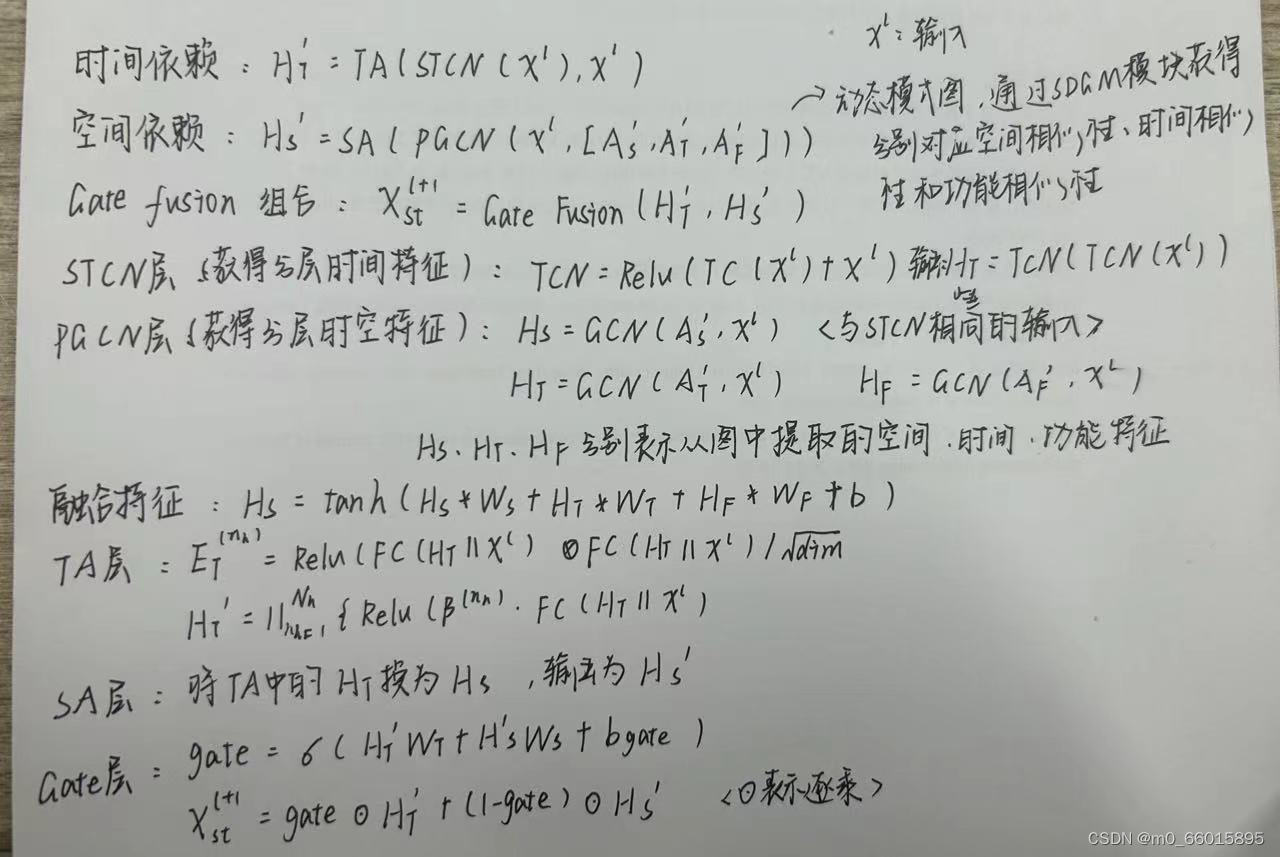 X^l：输入
时间依赖：H_T' = TA(STCN(X^l), X^l)
→动态模式图，通过SDGM模块获得
空间依赖：H_S' = SA(PGCN(X^l, [A_S', A_T', A_F']))
分别对应空间相似性、时间相似
性和功能相似性
Gate fusion 组合：X_st^{l+1} = Gate Fusion(H_T', H_S')
STCN层（获得分层时间特征）：TCN = Relu(TC(X^l)+X^l) 输出H_T = TCN(TCN(X^l))
PGCN层（获得分层时空特征）：H_S = GCN(A_S', X^l) <与STCN相同的输入>
H_T = GCN(A_T', X^l) H_F = GCN(A_F', X^l)
H_S、H_T、H_F 分别表示从图中提取的空间、时间、功能特征
融合特征：H_S = tanh(H_S * W_S + H_T * W_T + H_F * W_F + b)
TA层：E_T^{(n_h)} = Relu(FC(H_T || X^l) ⊙ FC(H_T || X^l) / √dim
H_T' = ||_{n_h=1}^{N_h} { Relu(β^{(n_h)} · FC(H_T || X^l)
SA层：将TA中的 H_T 换为 H_S，输出为 H_S'
Gate层：gate = σ(H_T'W_T + H_S'W_S + b gate)
X_st^{l+1} = gate ⊙ H_T' + (1-gate) ⊙ H_S' <⊙表示逐乘>
CSDN @m0_66015895